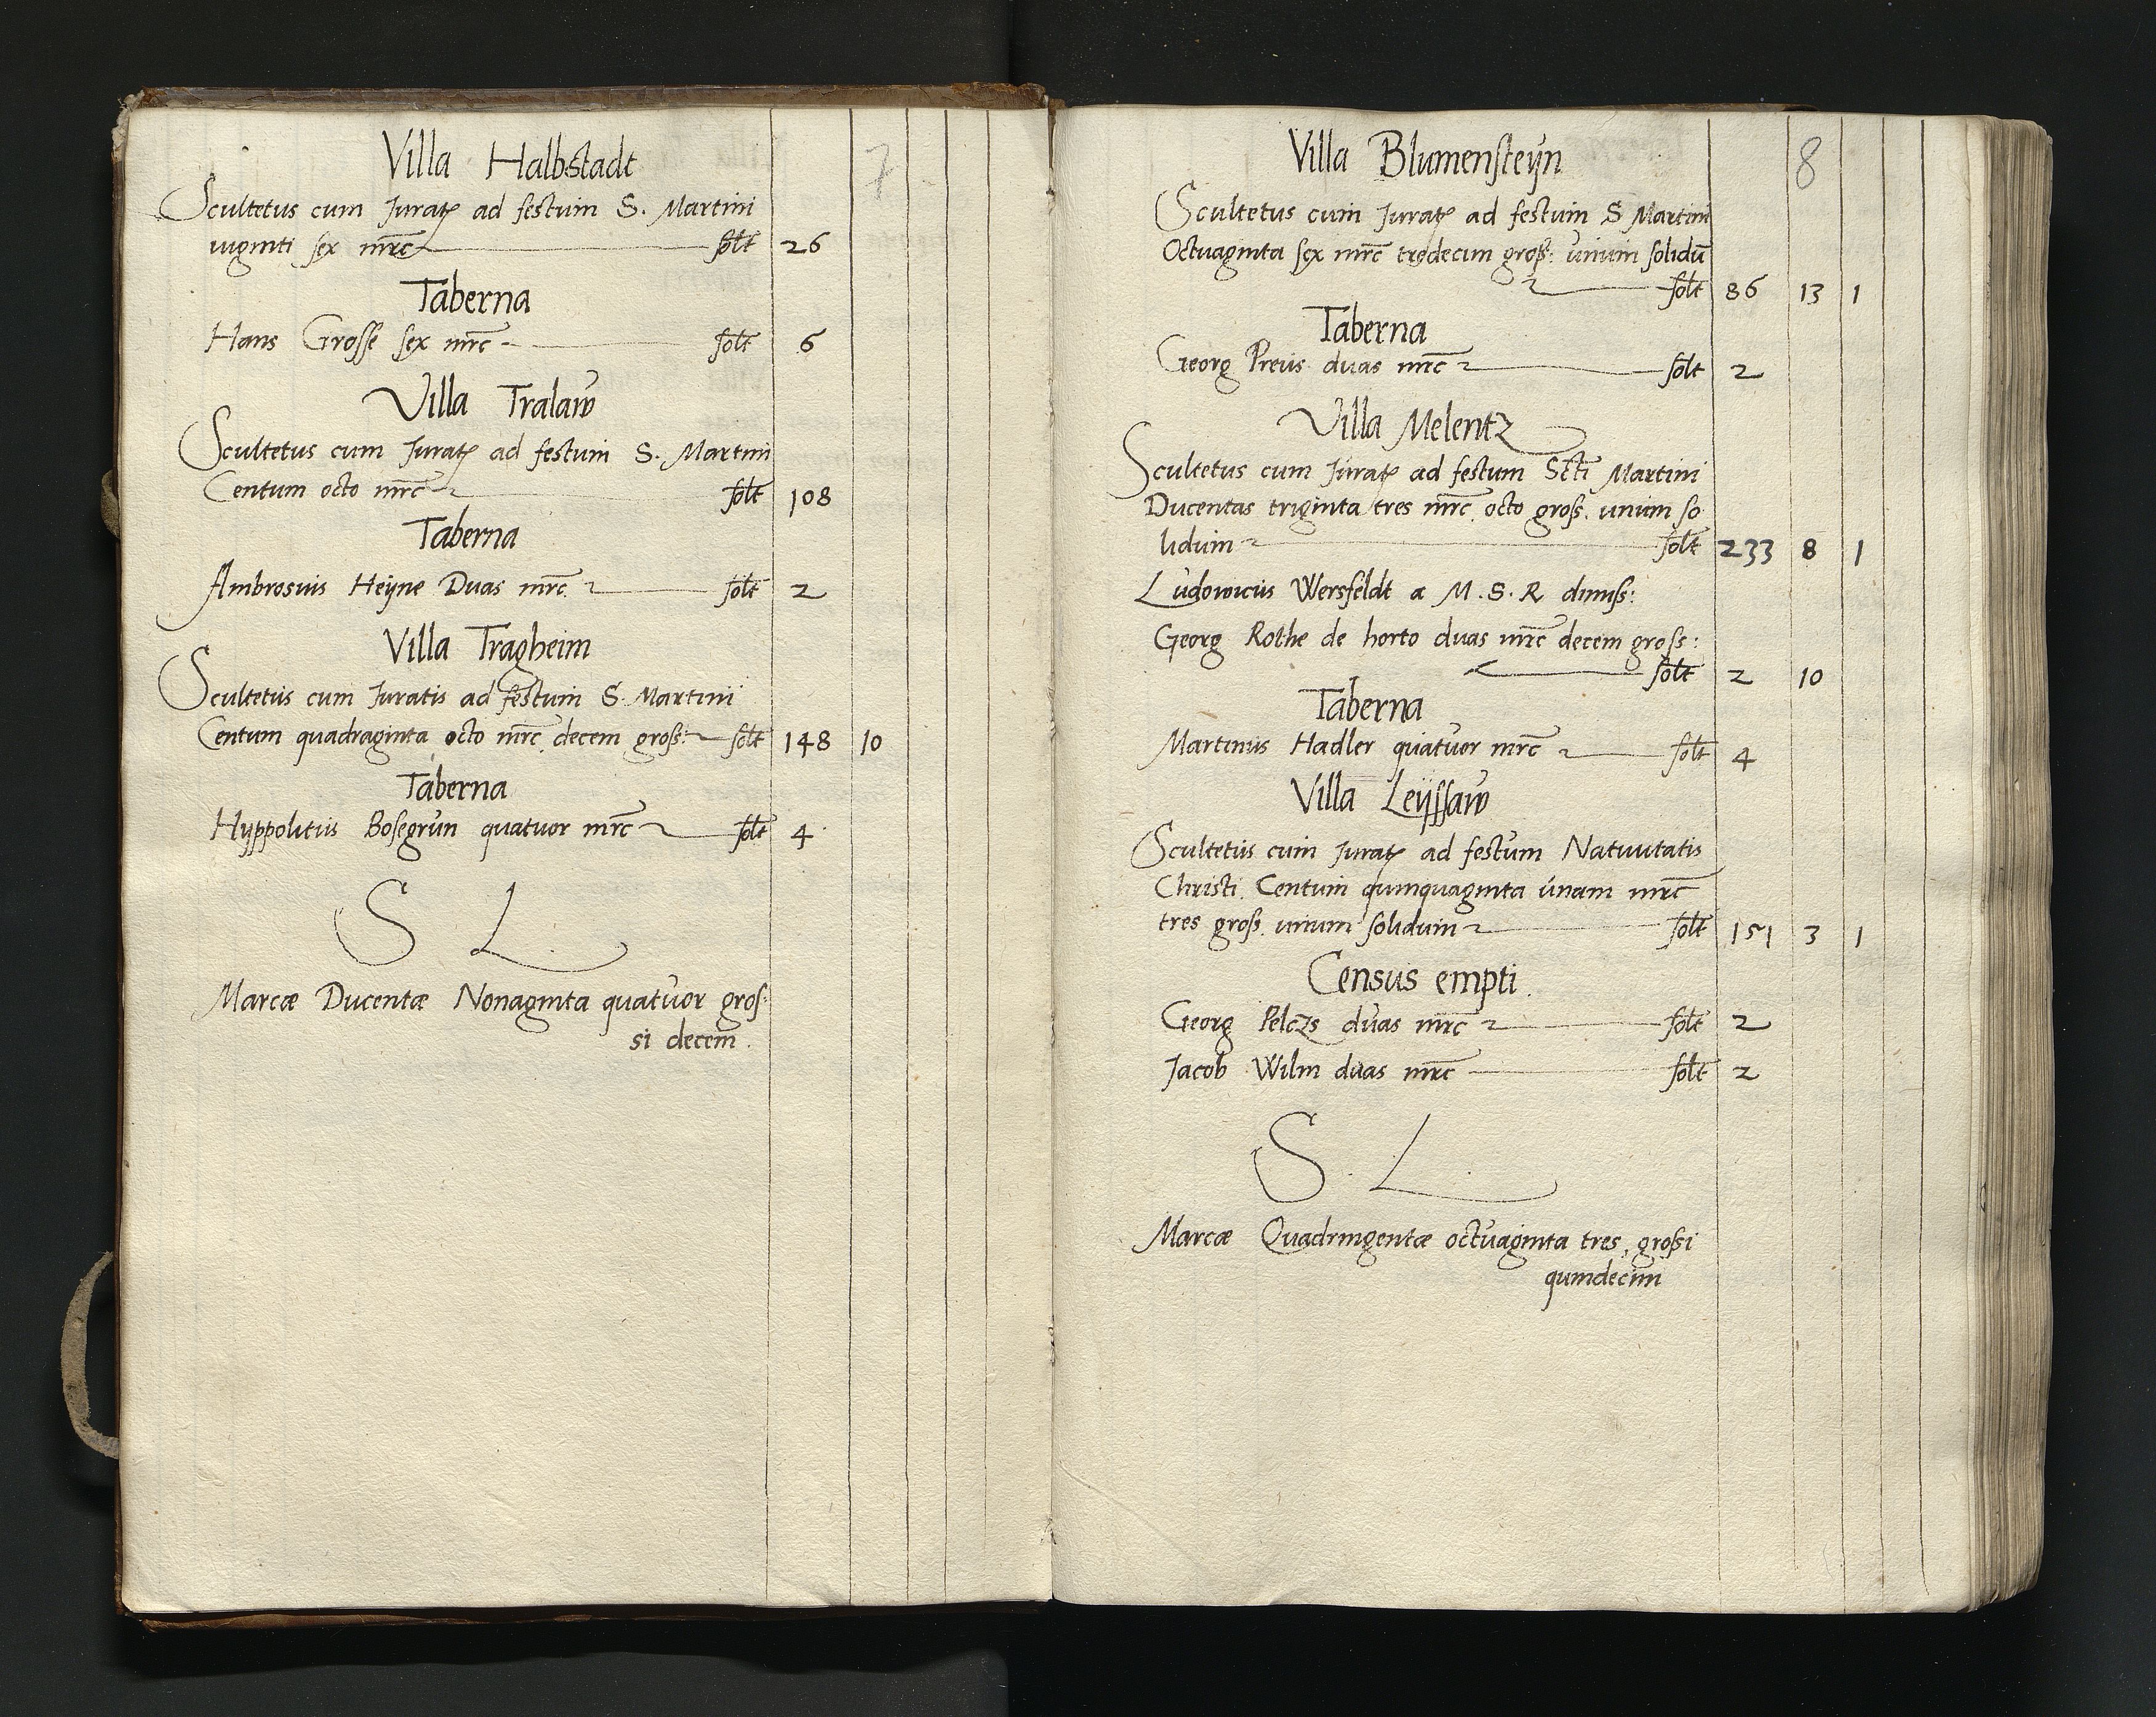 7
Villa Halbstadt
Scultetus cum Juratꝭ ad festum S. Martini
viginti sex mrc solt 26
Taberna
Hans Grosse sex mrc solt 6
Villa Tralaw
Scultetus cum Juratꝭ ad festum S. Martini
Centum octo mrc solt 108
Taberna
Ambrosius Heÿne Duas mrc. solt 2
Villa Tragheim
Scultetus cum Juratis ad festum S. Martini
Centum quadraginta octo mrc decem groß: solt 148 10
Taberna
Hÿppolitus Bosegrun quatuor mrc solt 4
S L.
Marcæ Ducentæ Nonaginta quatuor gros-
si decem.
8
Villa Blumensteÿn
Scultetus cum Juratꝭ ad festum S Martini
Octuaginta sex mrc tredecim groß: unum solidū
solt 86 13 1
Taberna
Georg Preus duas mrc solt 2
Villa Melentz
Scultetus cum Juratꝭ ad festum Scti Martini
Ducentas triginta tres mrc octo groß. unum so
lidum solt 233 8 1
Ludowicus Wersfeldt a M. S. R dimiss:
Georg Rothe de horto duas mrc decem gross:
solt 2 10
Taberna
Martinus Hadler quatuor mrc solt 4
Villa Leÿssaw
Scultetus cum Juratꝭ ad festum Natiuitatis
Christi. Centum quinquaginta unam mrc
tres groß. unum solidum solt 151 3 1
Census empti.
Georg Pelczs duas mrc solt 2
Jacob Wilm duas mrc solt 2
S. L.
Marcæ Quadringentæ octuaginta tres, großi
quindecim